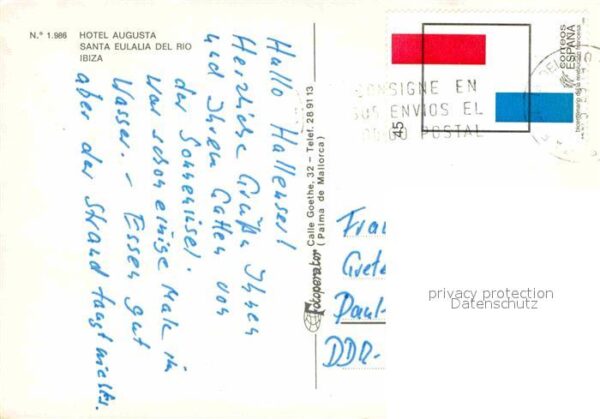 N.º 1.986 HOTEL AUGUSTA
SANTA EULALIA DEL RIO
IBIZA
Hallo Hallenser!
Herzliche Grüße Ihnen
und Ihrem Gatten von
der Sonneninsel.
War schon einige Male im
Wasser. - Essen gut
aber der Strand taugt nichts.
Fotoperator Calle Goethe, 32 – Telef. 28 91 13
(Palma de Mallorca)
CONSIGNE EN
SUS ENVIOS EL
POSTAL
45
correos
ESPAÑA
bicentenario de la revolución francesa
Frau
Grete
Paul-
DDR-
privacy protection
Datenschutz